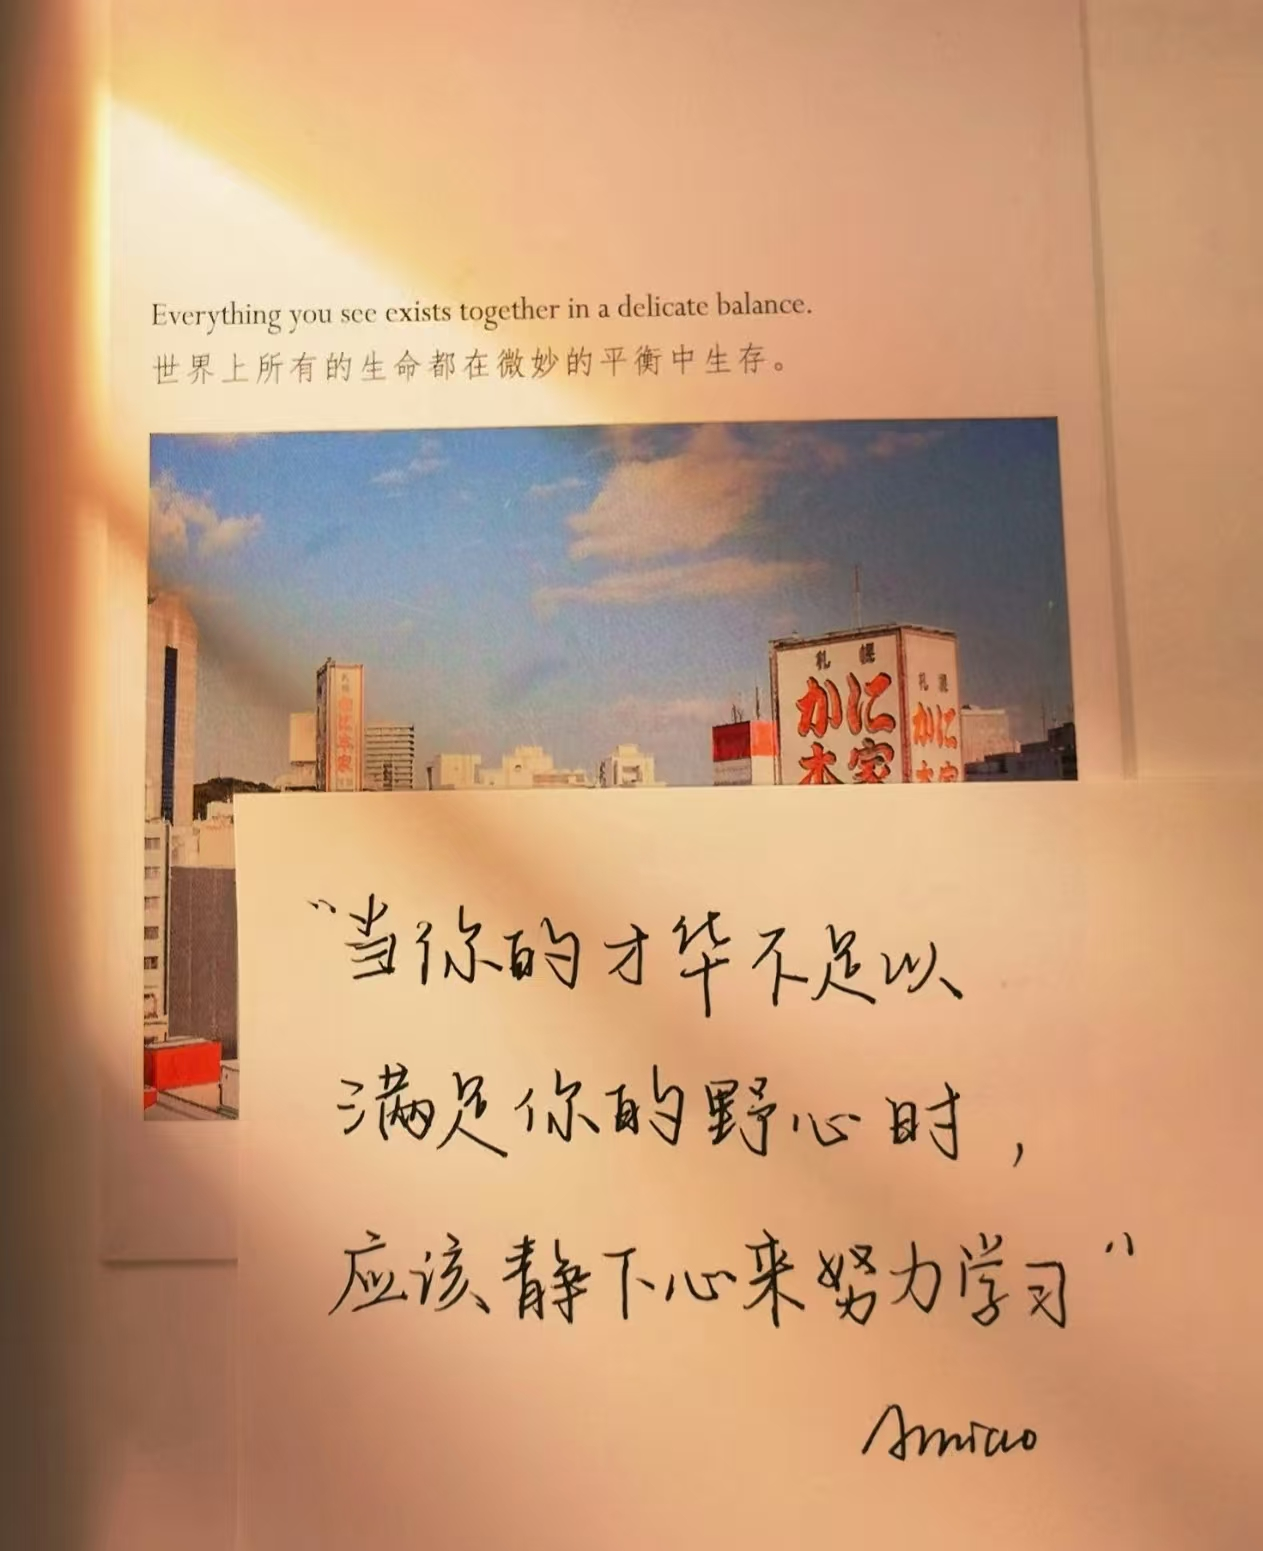 Everything you see exists together in a delicate balance.
世界上所有的生命都在微妙的平衡中生存。
札幌
かに
本家
札幌
かに
本
札幌
かに本家
“当你的才华不足以
满足你的野心时，
应该静下心来努力学习”
Amiao